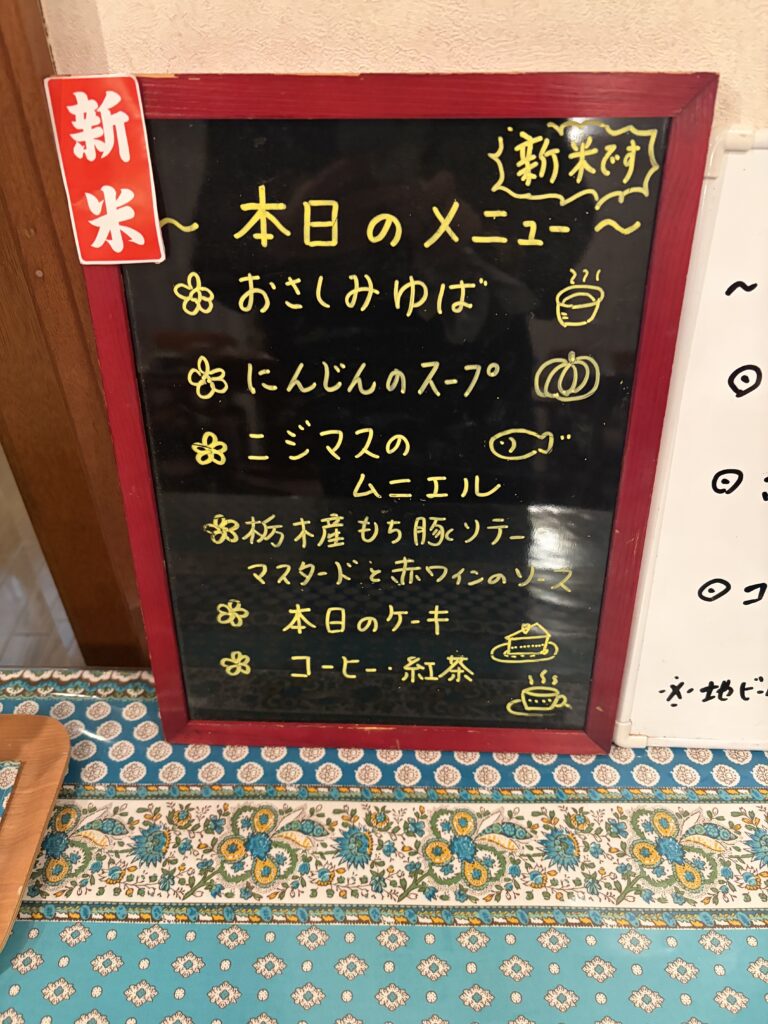 新米
新米です
～ 本日のメニュー ～
おさしみゆば
にんじんのスープ
ニジマスの
ムニエル
栃木産もち豚ソテー
マスタードと赤ワインのソース
本日のケーキ
コーヒー・紅茶
～
コ
※地ビー